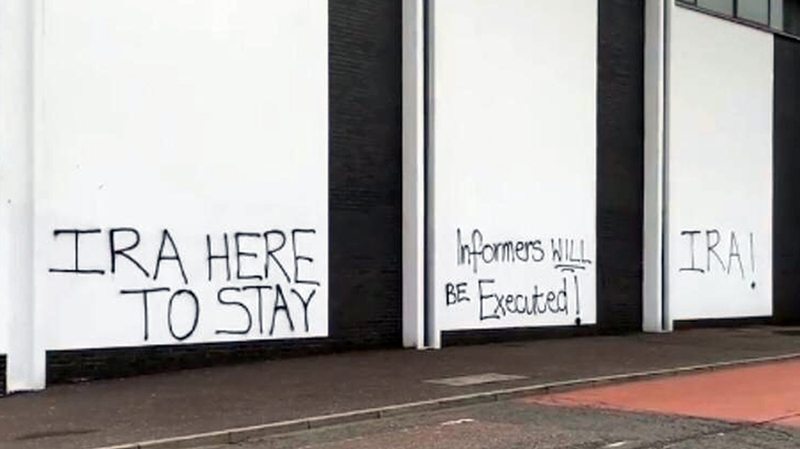 IRA HERE
TO STAY
Informers WILL
BE Executed!
IRA!